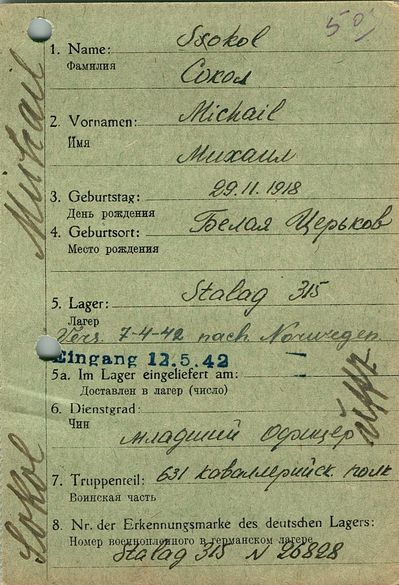 50
1. Name: Ssokol
Фамилия
Сокол
2. Vornamen: Michail
Имя
Михаил
3. Geburtstag: 29.11.1918
День рождения
4. Geburtsort: Белая Церьков
Место рождения
5. Lager: Stalag 315
Лагерь
Vers. 7-4-42 nach Norwegen
Eingang 12.5.42
5a. Im Lager eingeliefert am:
Доставлен в лагер (число)
6. Dienstgrad:
Чин
младший офицер
7. Truppenteil: 631 каваллерийск. полк
Воинская часть
8. Nr. der Erkennungsmarke des deutschen Lagers:
Номер военнопленного в германском лагере
Stalag 315 N 26828
Michail
Sokol